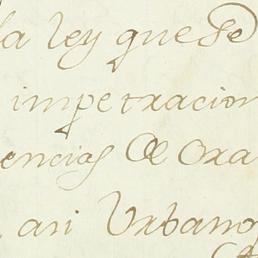 la ley que se
impetracion
encias de Ora
asi Urbano